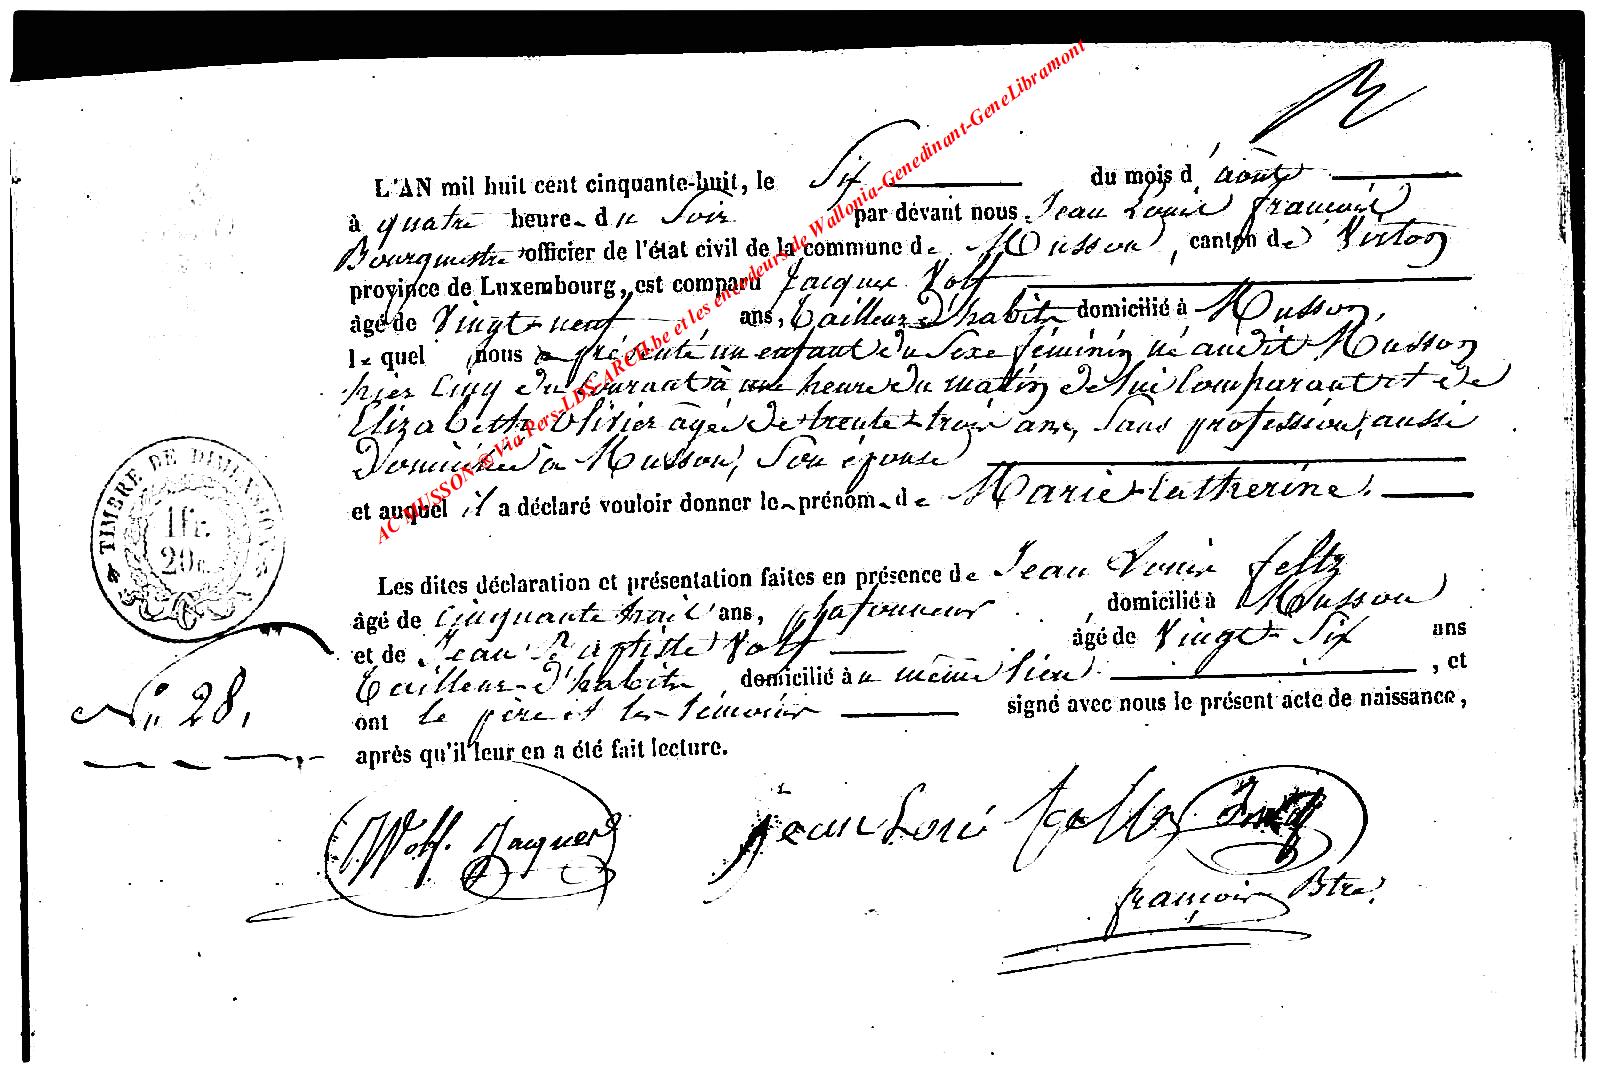 L'AN mil huit cent cinquante-huit, le Six du mois d'août
à quatre heure du Soir par dévant nous Jean Louis françois
Bourgmestre officier de l'état civil de la commune de Musson, canton de Virton
province de Luxembourg, est comparu Jacque Volf
âgé de Vingt-neuf ans, tailleur d'habits domicilié à Musson,
le quel nous a présenté un enfant du Sexe féminin né audit Musson
hier cinq du courant à une heure du matin de lui Comparant et de
Elizabeth Olivier âgée de trente-trois ans, Sans profession, aussi
domiciliée à Musson, Son épouse
et auquel il a déclaré vouloir donner le prénom de Marie-Catherine.
Les dites déclaration et présentation faites en présence de Jean Louis feltz
âgé de cinquante trois ans, plafonneur, domicilié à Musson
et de Jean Baptiste Volf âgé de Vingt-Six ans
tailleur-d'habits, domicilié au même lieu, et
ont le père et les témoins signé avec nous le présent acte de naissance,
après qu'il leur en a été fait lecture.
TIMBRE DE DIMENSION
1fr.
20c.
N° 28.
Wolf. Jacques
Jean Loui
françois Btre.
AC MUSSON @ Via Pers-LDS-ARCH.be et les encodeurs de Wallonia-Genedinant-GeneLibramont